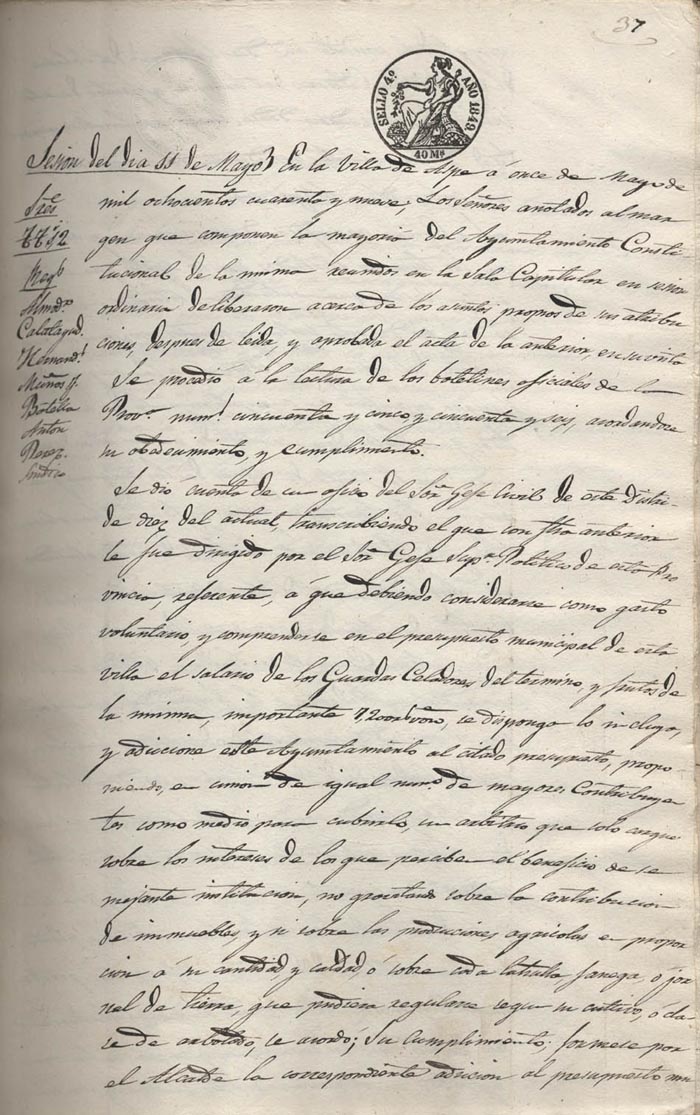 37
SELLO 4º AÑO 1849
40 Ms
Sesion del dia 11 de Mayo} En la Villa de Aspe á once de Mayo de
Sres
mil ochocientos cuarenta y nueve, Los Señores anotados al mar
gen que componen la mayoria del Ayuntamiento Consti-
tucional de la misma reunidos en la Sala Capitular en sesion
ordinaria deliberaron acerca de los asuntos propios de sus atribu
ciones, despues de leida, y aprobada el acta de la anterior, en su vista
Almodr
Calatayud.
Hernandz
Muños
Botella
Anton
Perez.
Sindico
Se procedió á la lectura de los boletines oficiales de la
Provª numˢ cincuenta y cinco y cincuenta y seis, acordandose
su obedecimiento, y cumplimiento.
Se dió cuenta de un oficio del Sor Gefe Civil de este Distri-
de diez del actual, transcribiendo el que con fha anterior
le fue dirigido por el Sor Gefe Supr Politico de esta Pro
vincia, referente, á que debiendo considerarse como gasto
voluntario, y comprenderse en el presupuesto municipal de esta
villa el salario de los Guardas Celadores del termino, y frutos de
la misma, importante 7,200 rs von, se disponga lo incluya,
y adiccione este Ayuntamiento al citado presupuesto, propo-
niendo, en union de igual numº de mayores Contribuyen
tes como medio para cubrirlo, un arbitrio que solo cargue
sobre los intereses de los que perciben el beneficio de se
mejante institucion, no gravitando sobre la contribucion
de inmuebles, y si sobre las producciones agricolas en propor
cion á su cantidad y calidad, ó sobre cada tahulla fanega, ó jor
nal de tierra, que pudiera regularse segun su cultivo, ó cla-
se de arbolado, se acordó; Su cumplimiento; formese por
el Alcalde la correspondiente adicion al presupuesto mu